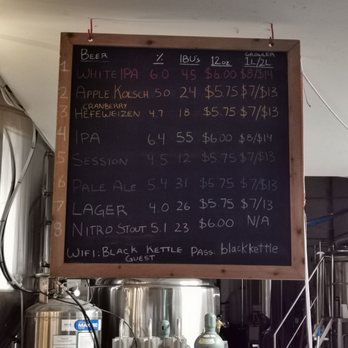 BEER % IBU'S 12oz GROWLER 1L/2L
1 WHITE IPA 6.0 45 $6.00 $8/$14
2 APPLE KOLSCH 5.0 24 $5.75 $7/$13
3 CRANBERRY HEFEWEIZEN 4.7 18 $5.75 $7/$13
4 IPA 6.4 55 $6.00 $8/$14
5 SESSION 4.5 12 $5.75 $7/$13
6 PALE ALE 5.4 31 $5.75 $7/$13
7 LAGER 4.0 26 $5.75 $7/$13
8 NITRO STOUT 5.1 23 $6.00 N/A
WIFI: BLACK KETTLE GUEST PASS: blackkettle